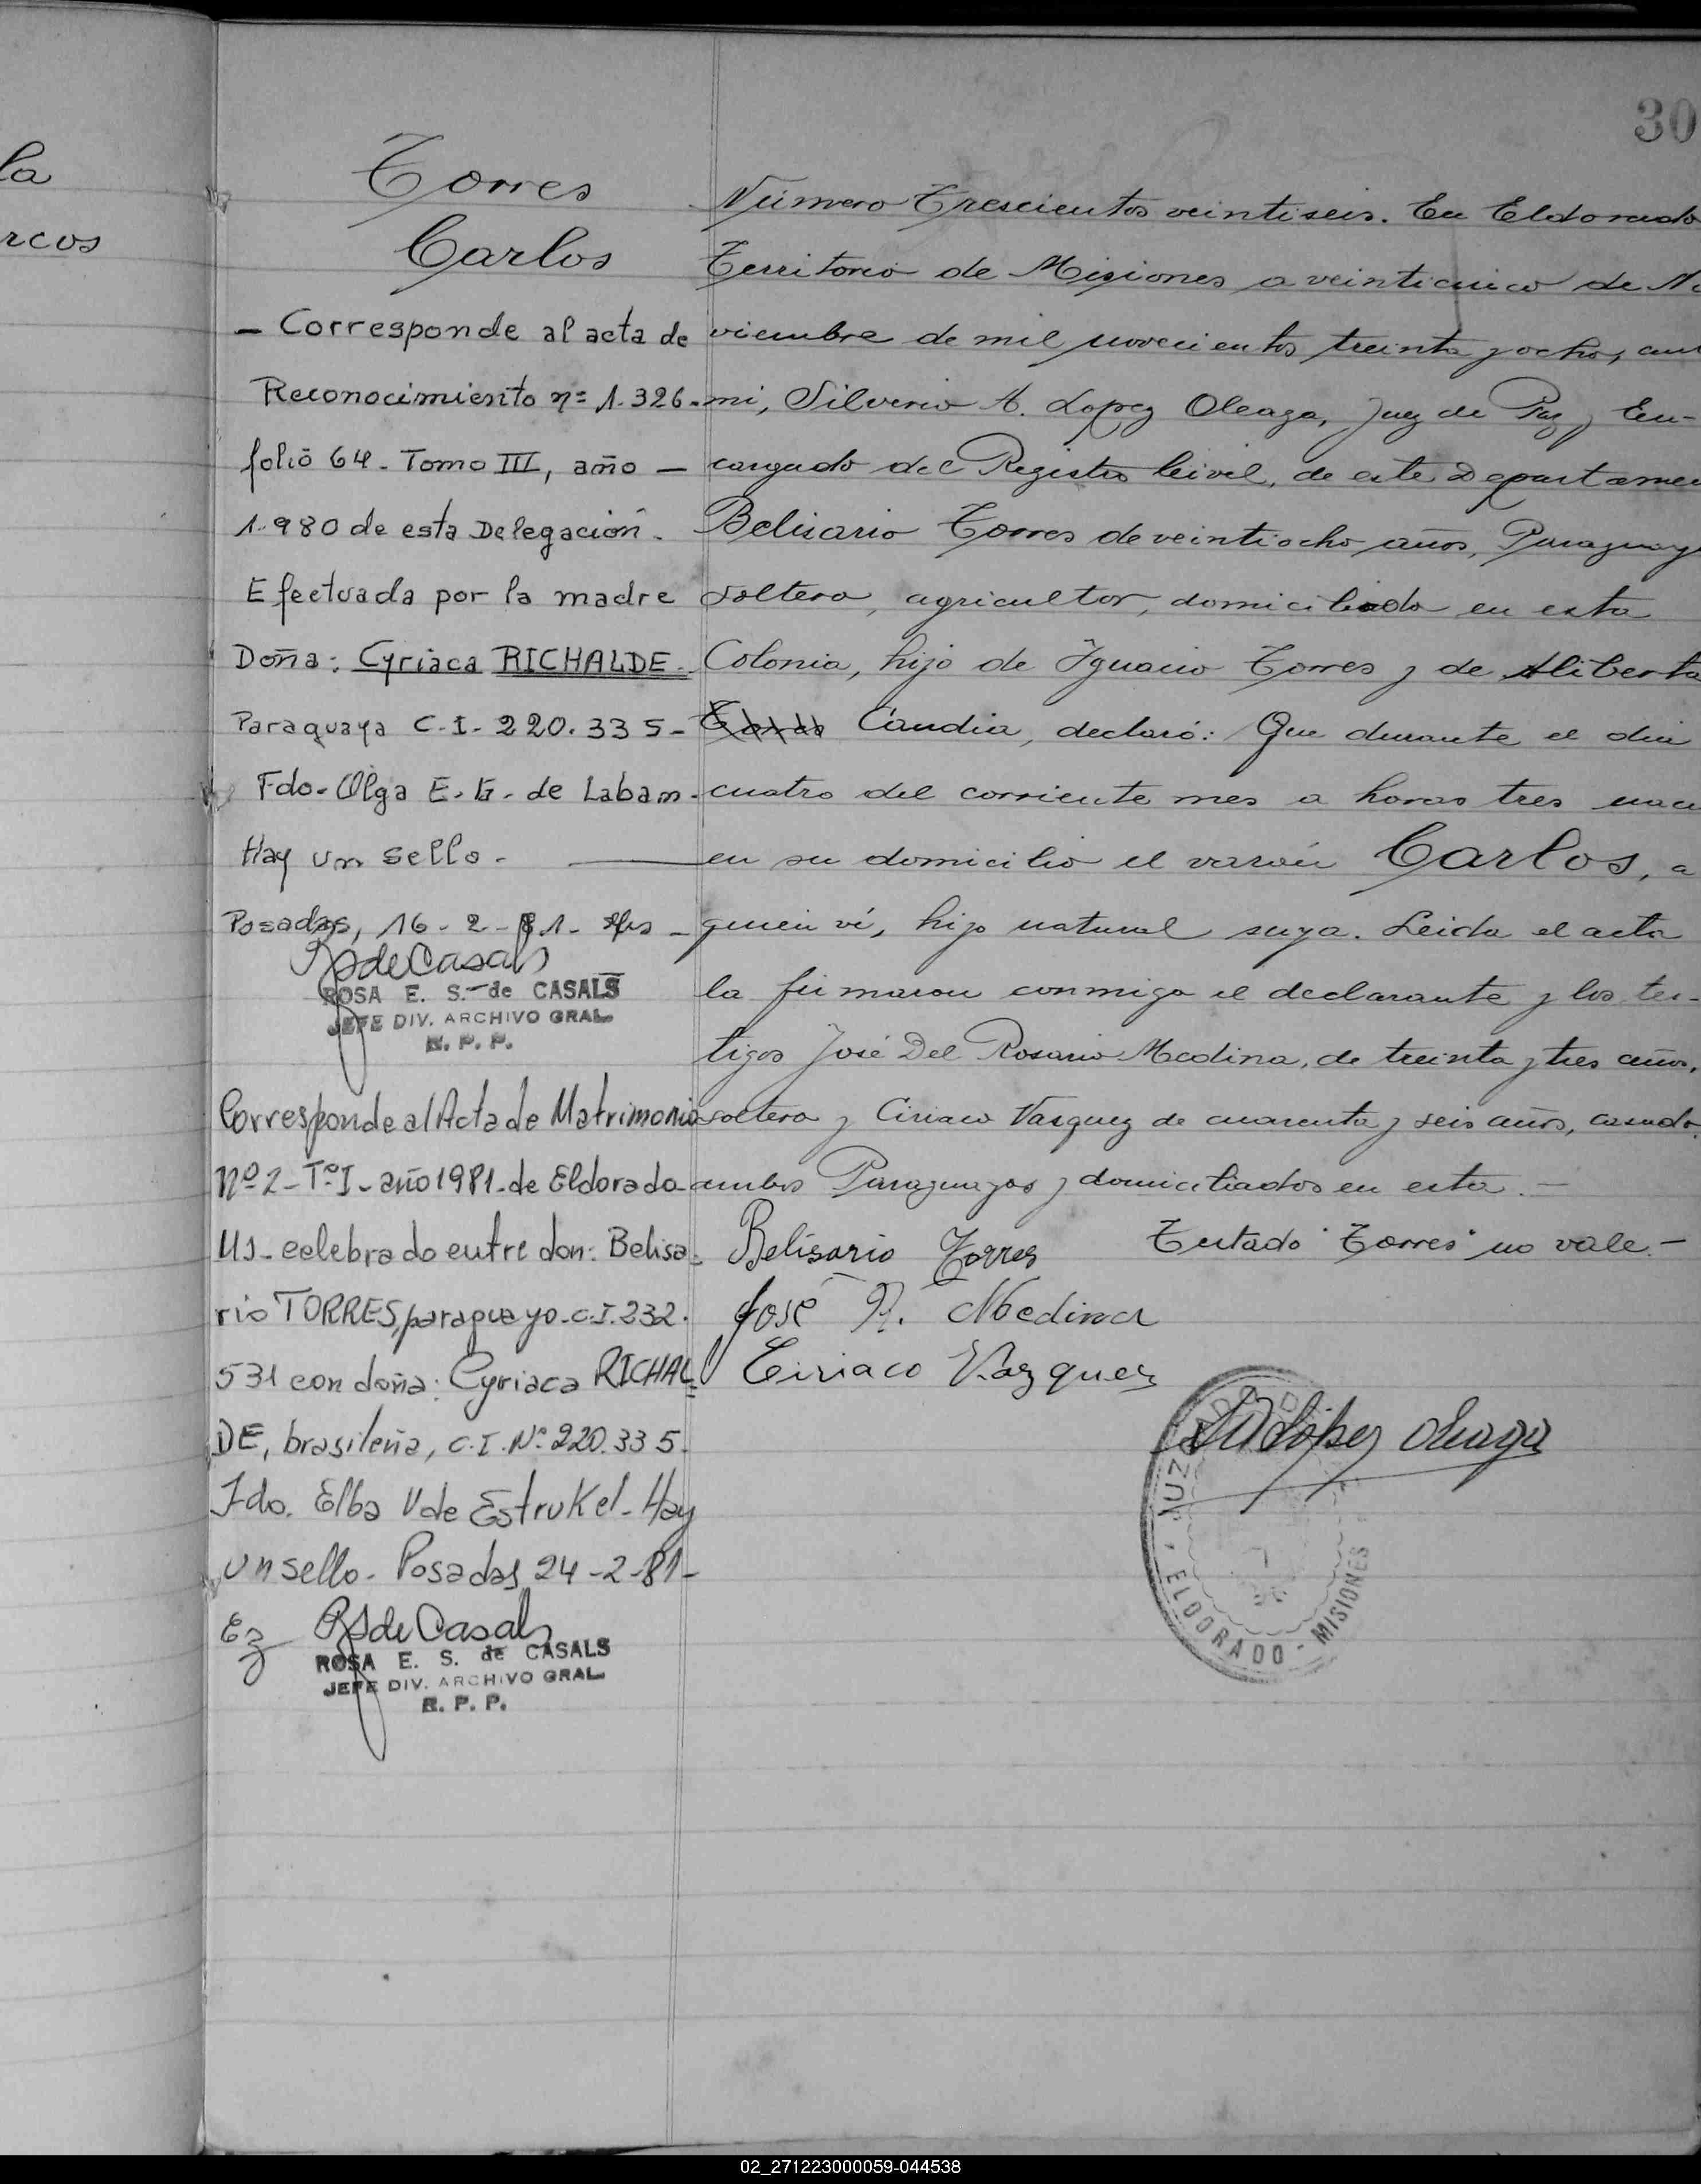 la
rcos
30
Torres
Carlos
- Corresponde al acta de
Reconocimiento nº 1.326.
folio 64 - Tomo III, año -
1.980 de esta Delegación.
Efectuada por la madre
Doña: Cyriaca RICHALDE.
Paraguaya C.I. 220.335-
Fdo. Olga E. G. de Labam.
Hay un sello. -
Posadas, 16-2-81-
RSdeCasals
ROSA E. S. de CASALS
JEFE DIV. ARCHIVO GRAL.
R. P. P.
Corresponde al Acta de Matrimonio
Nº 2 - Tº I - año 1981 - de Eldorado
Ms - celebrado entre don: Belisa-
rio TORRES, paraguayo - C.I. 232.
531 con doña: Cyriaca RICHAL=
DE, brasileña, C.I. Nº 220.335.
Fdo. Elba V de Estrukel - Hay
un sello - Posadas, 24-2-81-
Ez RSdeCasals
ROSA E. S. de CASALS
JEFE DIV. ARCHIVO GRAL.
R. P. P.
Número Trescientos veintiseis. En Eldorado
Territorio de Misiones a veinticinco de No
viembre de mil novecientos treinta y ocho, an
mi, Silverio A. Lopez Oleaga, Juez de Paz y En-
cargado del Registro Civil, de este Departamen
Belisario Torres de veintiocho años, Paraguayo
soltero, agricultor, domiciliado en esta
Colonia, hijo de Ignacio Torres y de Aliberta
Torres Candia, declaró: Que durante el dia
cuatro del corriente mes a horas tres naci
en su domicilio el varón Carlos, a
quien ví, hijo natural suyo. Leida el acta
la firmaron conmigo el declarante y los tes-
tigos José Del Rosario Medina, de treinta y tres años,
soltero y Ciriaco Vasquez de cuarenta y seis años, casado,
ambos Paraguayos y domiciliados en esta. -
Belisario Torres Testado "Torres" no vale. -
José R. Medina
Ciriaco Vazquez
López Oleaga
JUZ
ELDORADO - MISIONES
02_271223000059-044538